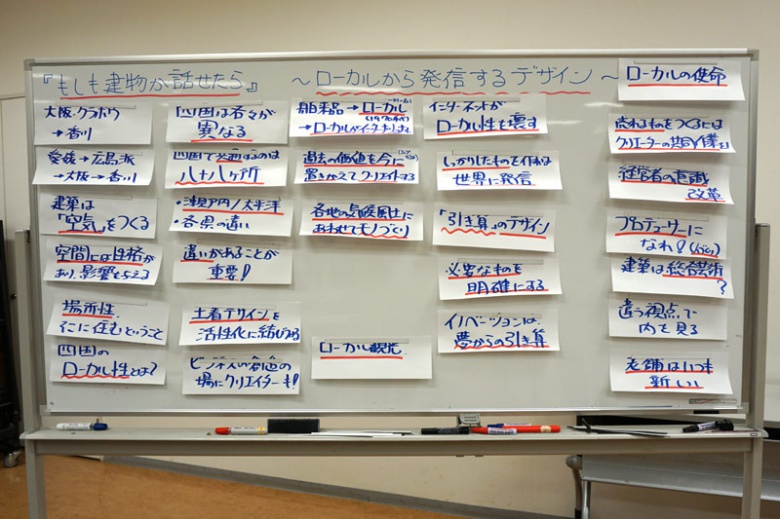 『もしも建物が話せたら』 ～ローカルから発信するデザイン～
大阪・クラボウ
→香川
愛媛→広島・派
→大阪→香川
建築は
「空気」をつくる
空間には性格が
あり、影響を与える
場所性
そこに住むということ
四国の
ローカル性とは?
四国は各々が
異なる
四国で共通するのは
八十八ヶ所
・瀬戸内/太平洋
・各県の違い
違いがあることが
重要!
土着デザインを
活性化に結びつける
ビジネスの創造の
場にクリエイターも!
舶来品→ローカル
(1970年代)
→ローカルがインターナショナル
過去の価値を今に
置きかえてクリエイトする
各地の気候風土に
あわせてモノづくり
ローカル観光
インターネットが
ローカル性を壊す
しっかりしたものを作れば
世界に発信
「引き算」のデザイン
必要なものを
明確にする
イノベーションは、
夢からの引き算
ローカルの使命
売れるものをつくるには
クリエーターの
経営者の意識
改革
プロデューサーに
なれ!
建築は総合芸術
?
違う視点で
内を見る
老舗はいつも
新しい